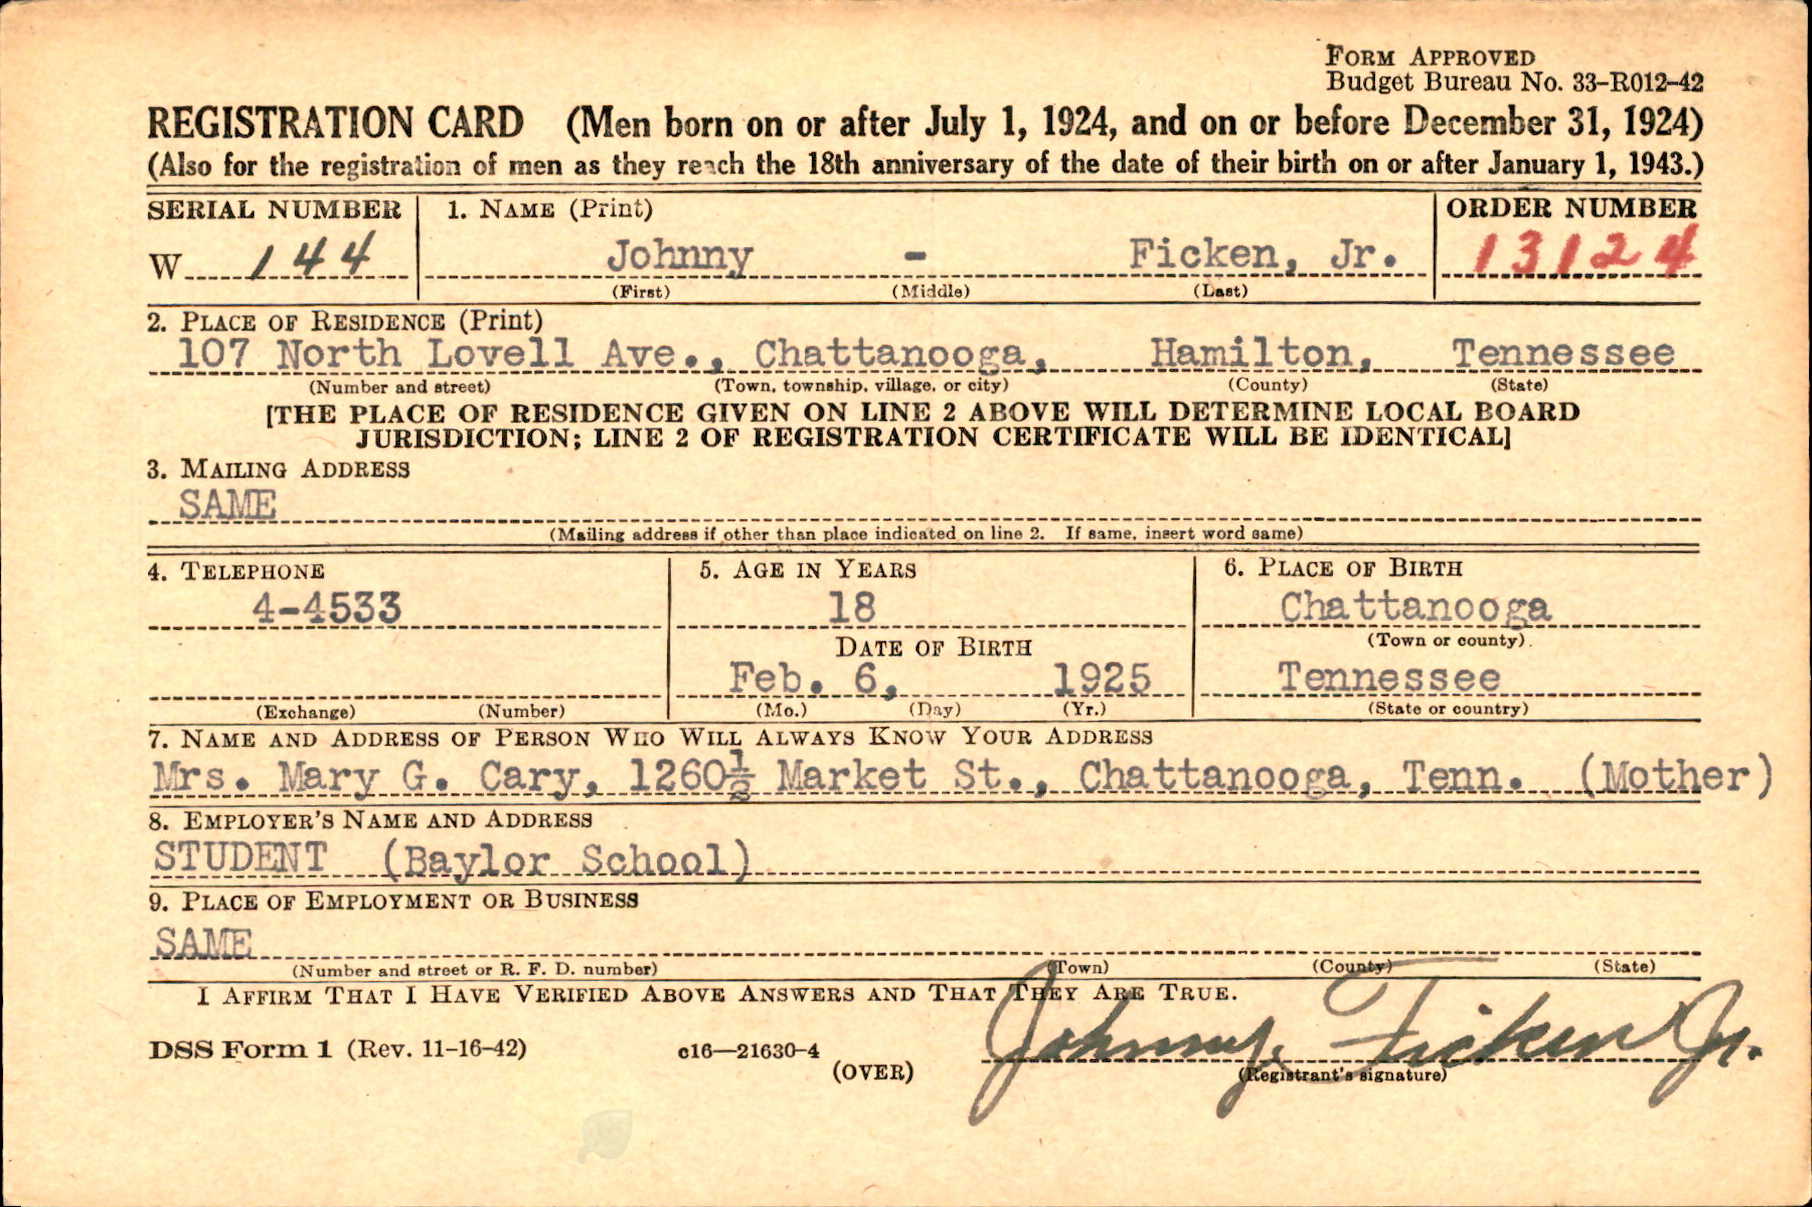 FORM APPROVED
Budget Bureau No. 33-R012-42
REGISTRATION CARD (Men born on or after July 1, 1924, and on or before December 31, 1924)
(Also for the registration of men as they reach the 18th anniversary of the date of their birth on or after January 1, 1943.)
SERIAL NUMBER 1. NAME (Print) ORDER NUMBER
W 144 Johnny - Ficken, Jr. 13124
(First) (Middle) (Last)
2. PLACE OF RESIDENCE (Print)
107 North Lovell Ave., Chattanooga, Hamilton, Tennessee
(Number and street) (Town, township, village, or city) (County) (State)
[THE PLACE OF RESIDENCE GIVEN ON LINE 2 ABOVE WILL DETERMINE LOCAL BOARD
JURISDICTION; LINE 2 OF REGISTRATION CERTIFICATE WILL BE IDENTICAL]
3. MAILING ADDRESS
SAME
(Mailing address if other than place indicated on line 2. If same, insert word same)
4. TELEPHONE 5. AGE IN YEARS 6. PLACE OF BIRTH
4-4533 18 Chattanooga
DATE OF BIRTH (Town or county)
Feb. 6, 1925 Tennessee
(Exchange) (Number) (Mo.) (Day) (Yr.) (State or country)
7. NAME AND ADDRESS OF PERSON WHO WILL ALWAYS KNOW YOUR ADDRESS
Mrs. Mary G. Cary, 1260½ Market St., Chattanooga, Tenn. (Mother)
8. EMPLOYER'S NAME AND ADDRESS
STUDENT (Baylor School)
9. PLACE OF EMPLOYMENT OR BUSINESS
SAME
(Number and street or R. F. D. number) (Town) (County) (State)
I AFFIRM THAT I HAVE VERIFIED ABOVE ANSWERS AND THAT THEY ARE TRUE.
DSS Form 1 (Rev. 11-16-42) c16—21630-4 Johnny Ficken Jr.
(OVER) (Registrant's signature)